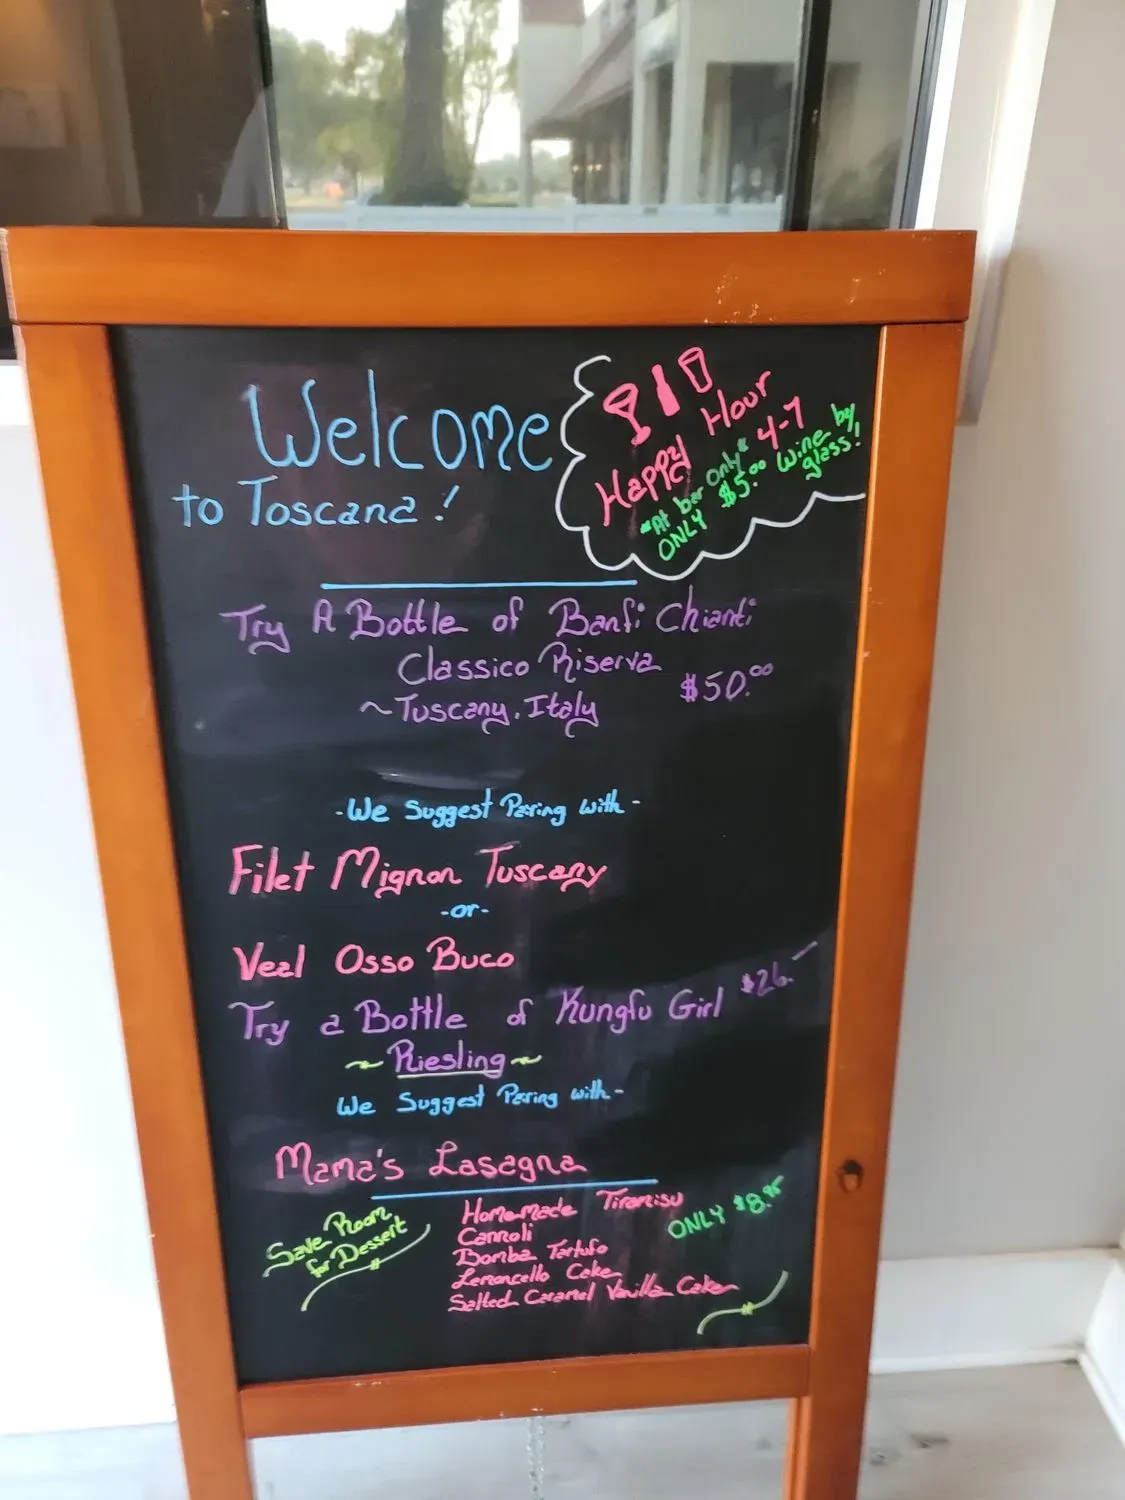 Welcome
to Toscana!
Happy Hour
"At bar only" 4-7
ONLY $5.00 wine by
glass!
Try A Bottle of Banfi Chianti
Classico Riserva
~Tuscany, Italy $50.00
-We Suggest Paring with-
Filet Mignon Tuscany
-or-
Veal Osso Buco
Try a Bottle of Kungfu Girl $26.-
~Riesling~
We Suggest Paring with-
Mama's Lasagna
Save Room
for Dessert
Homemade Tiramisu
Cannoli
Bomba Tartufo
Lemoncello Cake
Salted Caramel Vanilla Cake
ONLY $8.95